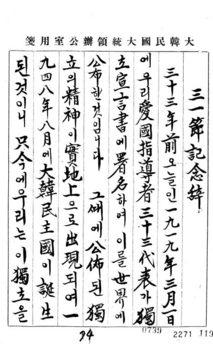 大韓民國大統領辦公室用箋
三一節記念辭
三十三年前오늘인一九一九年三月一日
에우리愛國指導者三十三代表가獨
立宣言書에署名하여이를世界에
公布한것입니다 그때에公佈된獨
立의精神이實地上으로出現되여一
九四八年八月에大韓民主國이誕生
된것이니只今에우리는이獨立을
74
0739
2271 119